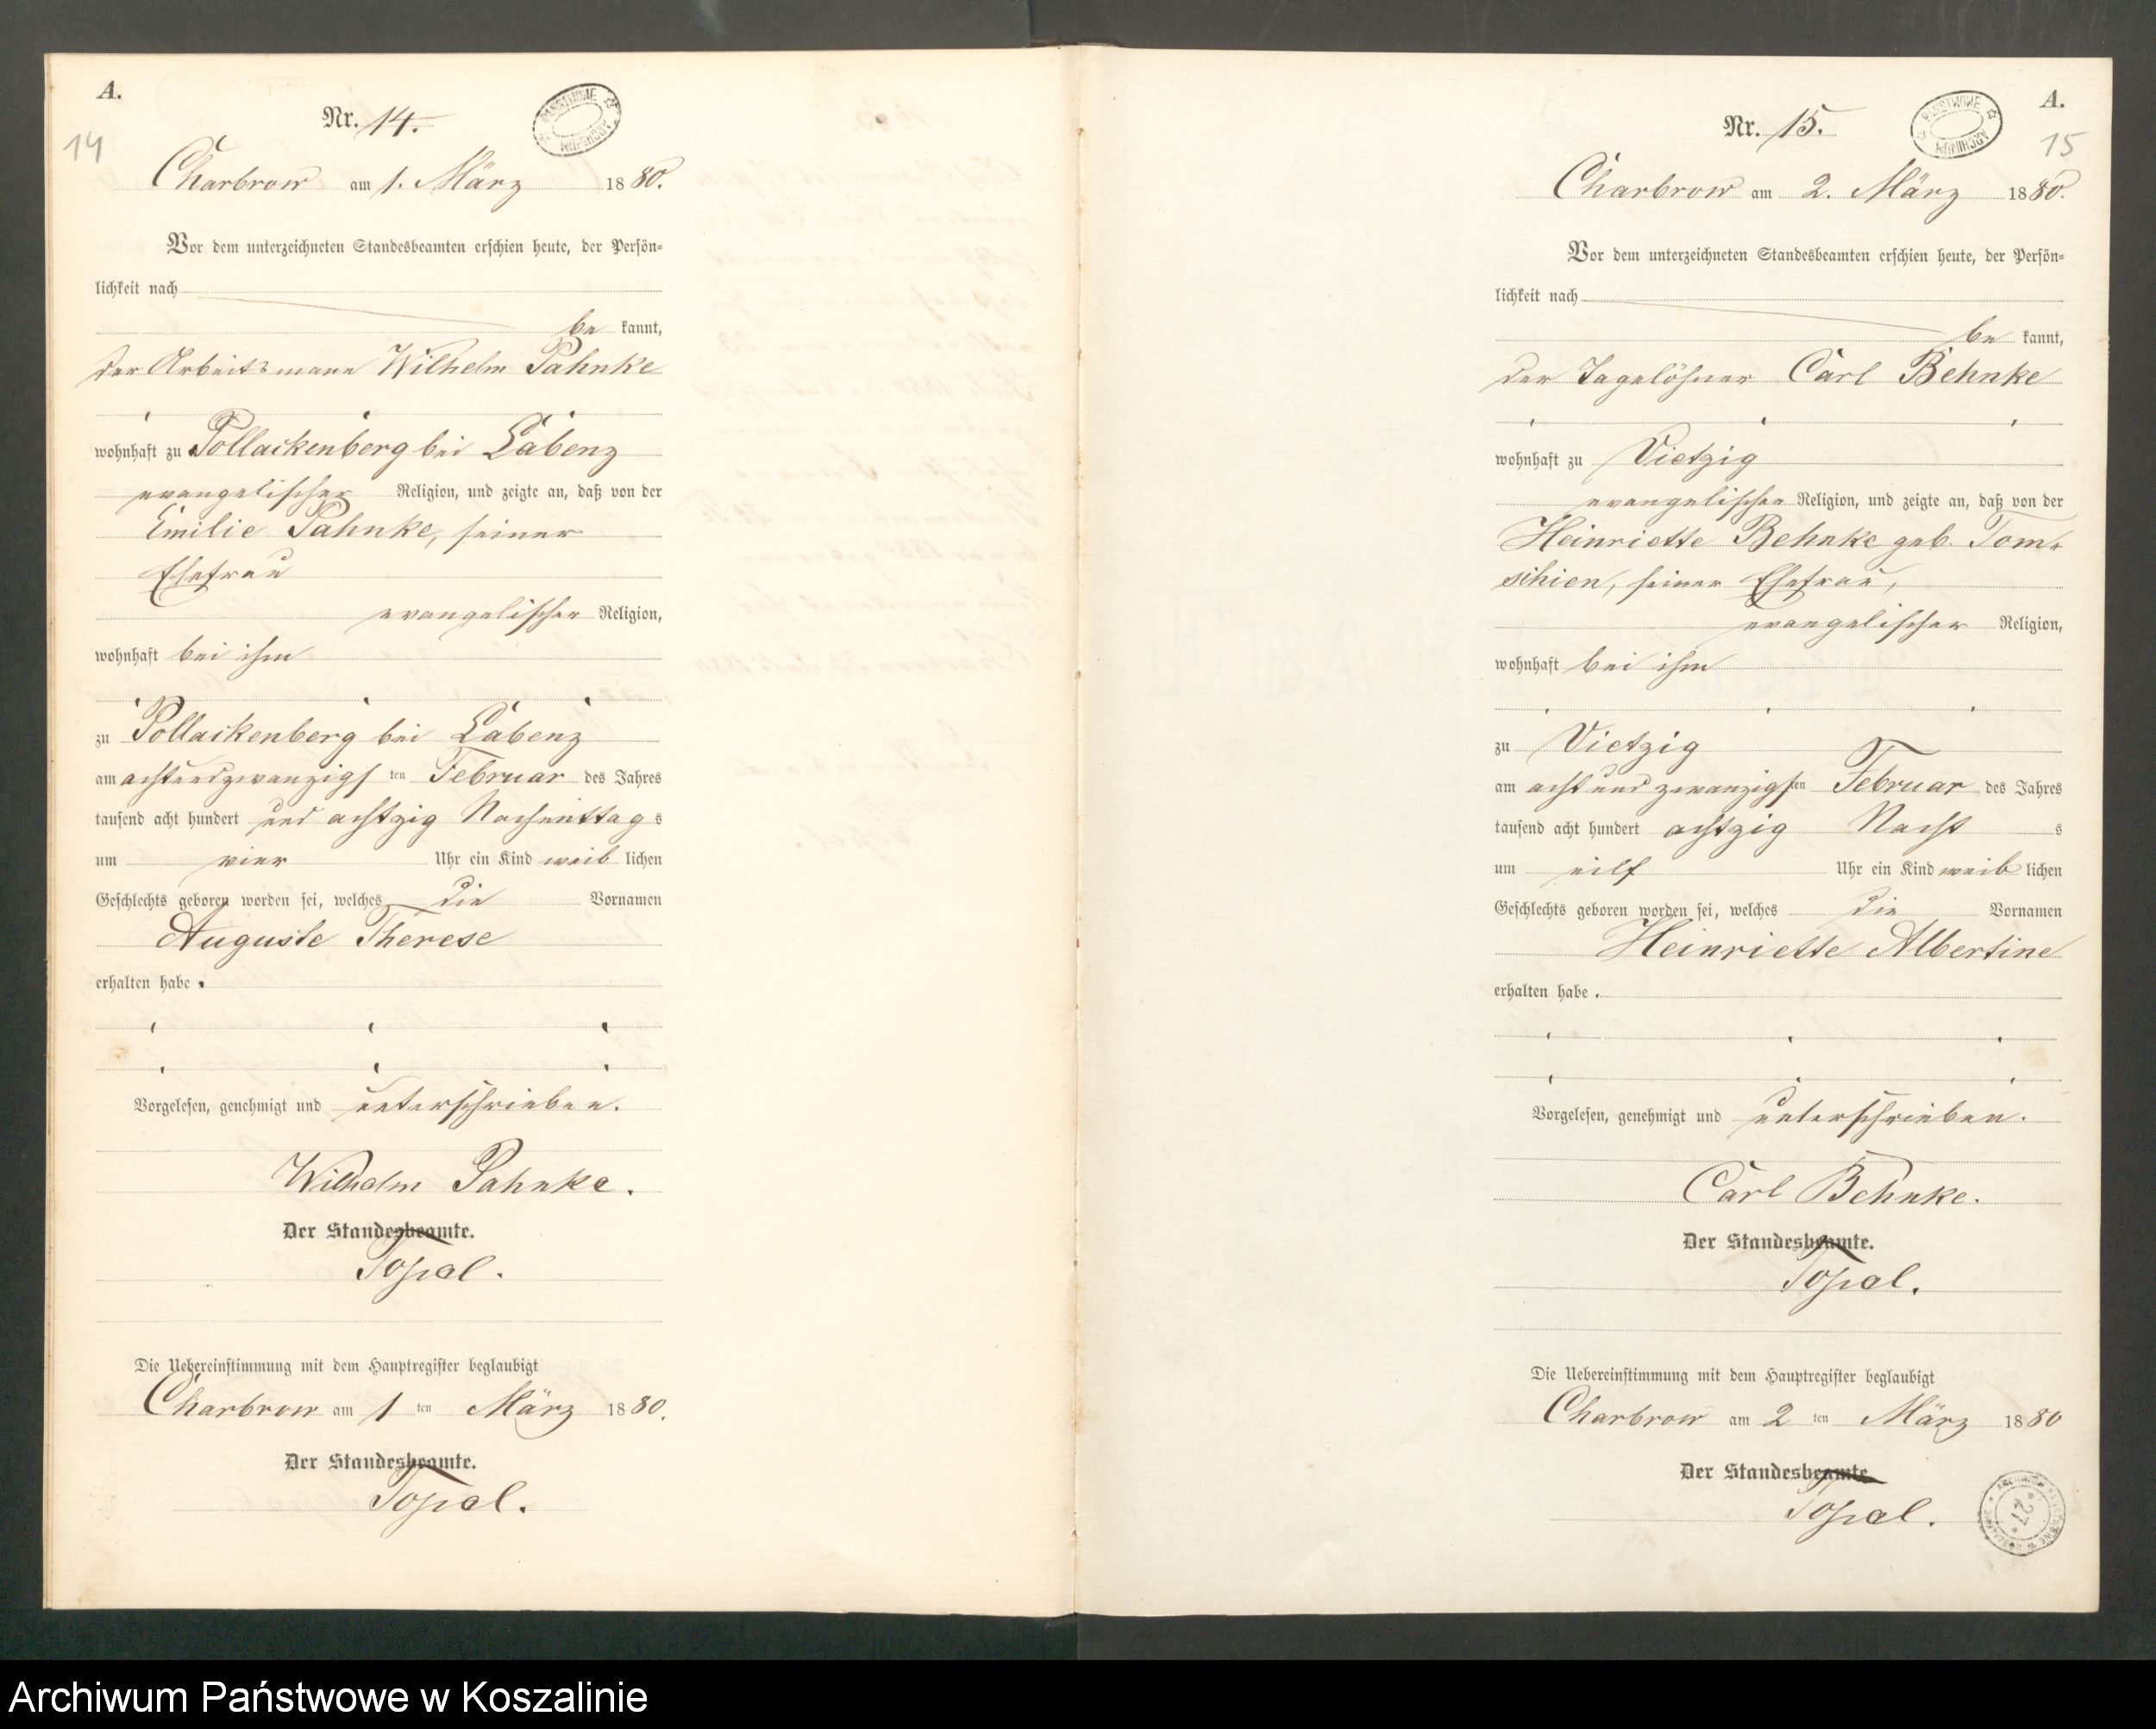 A.
14
Nr. 14.
PAŃSTWOWE ARCHIWUM
Charbrow am 1. März 1880.
Vor dem unterzeichneten Standesbeamten erschien heute, der Persön-
lichkeit nach
be kannt,
der Arbeitsmann Wilhelm Pahnke
wohnhaft zu Pollackenberg bei Labenz
evangelischer Religion, und zeigte an, daß von der
Emilie Pahnke, seiner
Ehefrau
evangelischer Religion,
wohnhaft bei ihm
zu Pollackenberg bei Labenz
am achtundzwanzigs ten Februar des Jahres
tausend acht hundert und achtzig Nachmittag s
um vier Uhr ein Kind weib lichen
Geschlechts geboren worden sei, welches die Vornamen
Auguste Therese
erhalten habe.
Vorgelesen, genehmigt und unterschrieben.
Wilhelm Pahnke.
Der Standesbeamte.
Topel.
Die Uebereinstimmung mit dem Hauptregister beglaubigt
Charbrow am 1 ten März 1880.
Der Standesbeamte.
Topel.
A.
15
Nr. 15.
PAŃSTWOWE ARCHIWUM
Charbrow am 2. März 1880.
Vor dem unterzeichneten Standesbeamten erschien heute, der Persön-
lichkeit nach
be kannt,
der Tagelöhner Carl Behnke
wohnhaft zu Vietzig
evangelischer Religion, und zeigte an, daß von der
Heinriette Behnke geb. Tom-
schien, seiner Ehefrau,
evangelischer Religion,
wohnhaft bei ihm
zu Vietzig
am acht und zwanzigsten Februar des Jahres
tausend acht hundert achtzig Nacht s
um eilf Uhr ein Kind weib lichen
Geschlechts geboren worden sei, welches die Vornamen
Heinriette Albertine
erhalten habe.
Vorgelesen, genehmigt und unterschrieben.
Carl Behnke.
Der Standesbeamte.
Topel.
Die Uebereinstimmung mit dem Hauptregister beglaubigt
Charbrow am 2 ten März 1880
Der Standesbeamte
Topel.
27
Archiwum Państwowe w Koszalinie